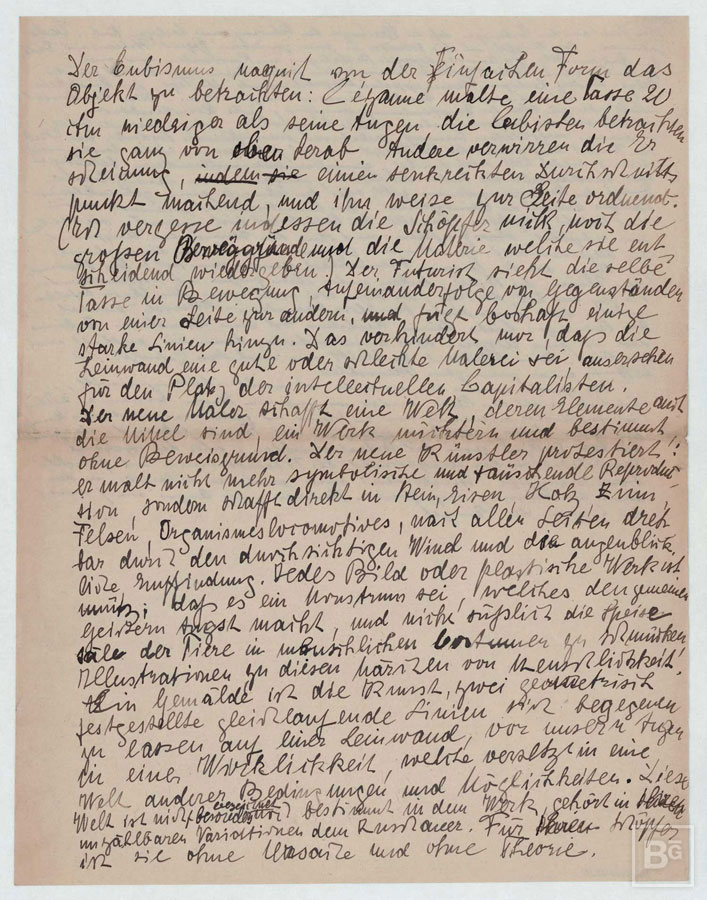 Der Cubismus, nasquit von der Einfachen Form das
Objekt zu betrachten: Cézanne malte eine Tasse 20
ctm niedriger als seine Augen, die Cubisten betrachten
sie ganz von oben herab Andere verwirren die Er
scheinung, indem sie einen senkrechten Durchschnitts
punkt machend, und ihn weise zur Seite ordnend.
(Ich vergesse indessen die Schöpfer nicht, noch die
großen Beweggründe und die Materie welche sie ent
scheidend wiedergeben.) Der Futurist sieht dieselbe
Tasse in Bewegung, Aufeinanderfolge von Gegenständen
von einer Seite zur andern, und fügt boshaft einige
starke Linien hinzu. Das verhindert nur, daß die
Leinwand eine gute oder schlechte Malerei sei, ausersehen
für den Platz der intellectuellen Capitalisten.
Der neue Maler schafft eine Welt, deren Elemente auch
die Mittel sind, ein Werk nüchtern und bestimmt
ohne Beweisgrund. Der neue Künstler protestiert!:
er malt nicht mehr symbolische und täuschende Reproduc
tion, sondern schafft direkt in Stein, Eisen, Holz Zinn,
Felsen, Organismeslocomotives, nach allen Seiten dreh
bar durch den durchsichtigen Wind und die augenblick
liche, Empfindung. Jedes Bild oder plastische Werk ist
unnütz; daß es ein Monstrum sei, welches den gemeinen
Geistern Angst macht, und nicht süßlich die Speise
säle der Tiere in menschlichen Costumen zu schmücken
Illustrationen zu diesen Märchen von Menschlichkeit!
Ein Gemälde ist die Kunst, zwei geometrisch
festgestellte gleichlaufende Linien sich begegnen
zu lassen auf einer Leinwand, vor unsern Augen
in einer Wirklichkeit, welche versetzt in eine
Welt anderer Bedingungen und Möglichkeiten. Diese
Welt ist nicht bezeichnet noch bestimmt in dem Werk, gehört in
unzählbaren Variationen dem Zuschauer. Für Schöpfer
ist sie ohne Ursache und ohne Theorie.
BG